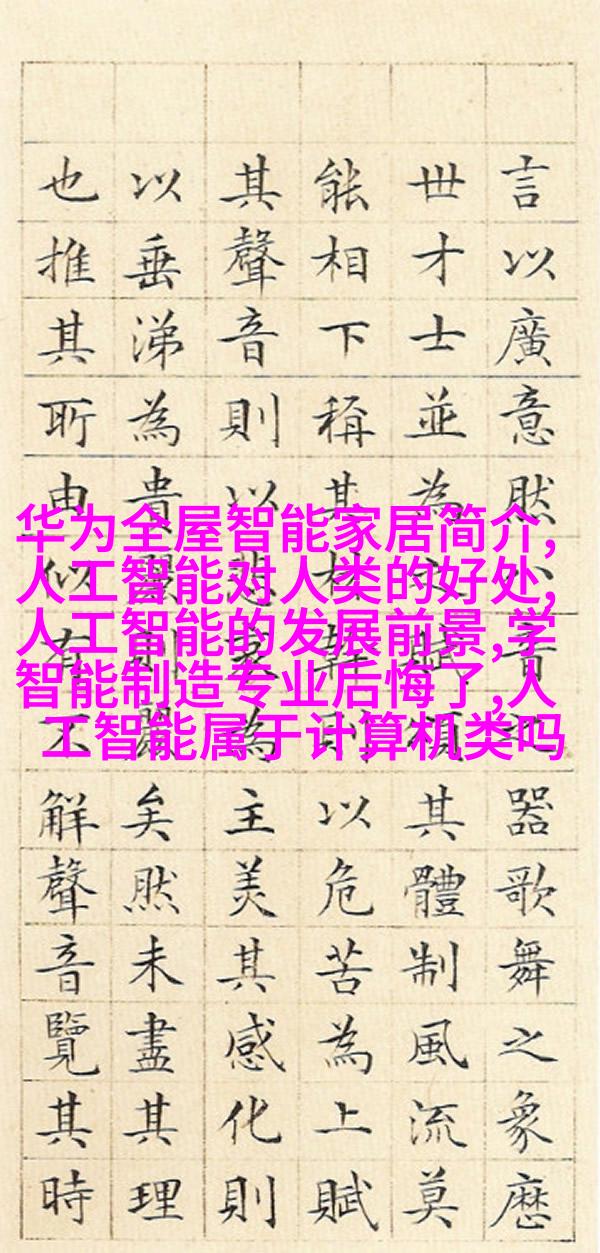 言以廣意然音器歌舞之象歷
世才士並為之賦頌其體制風流莫
能相下稱其材幹則以危苦為上賦
其聲音則以悲哀為主美其感化則
以垂涕為貴麗則麗矣然未盡其理
也推其所由似有不解聲音覽其時
华为全屋智能家居简介,
人工智能对人类的好处,
人工智能的发展前景,学
智能制造专业后悔了,人
工智能属于计算机类吗